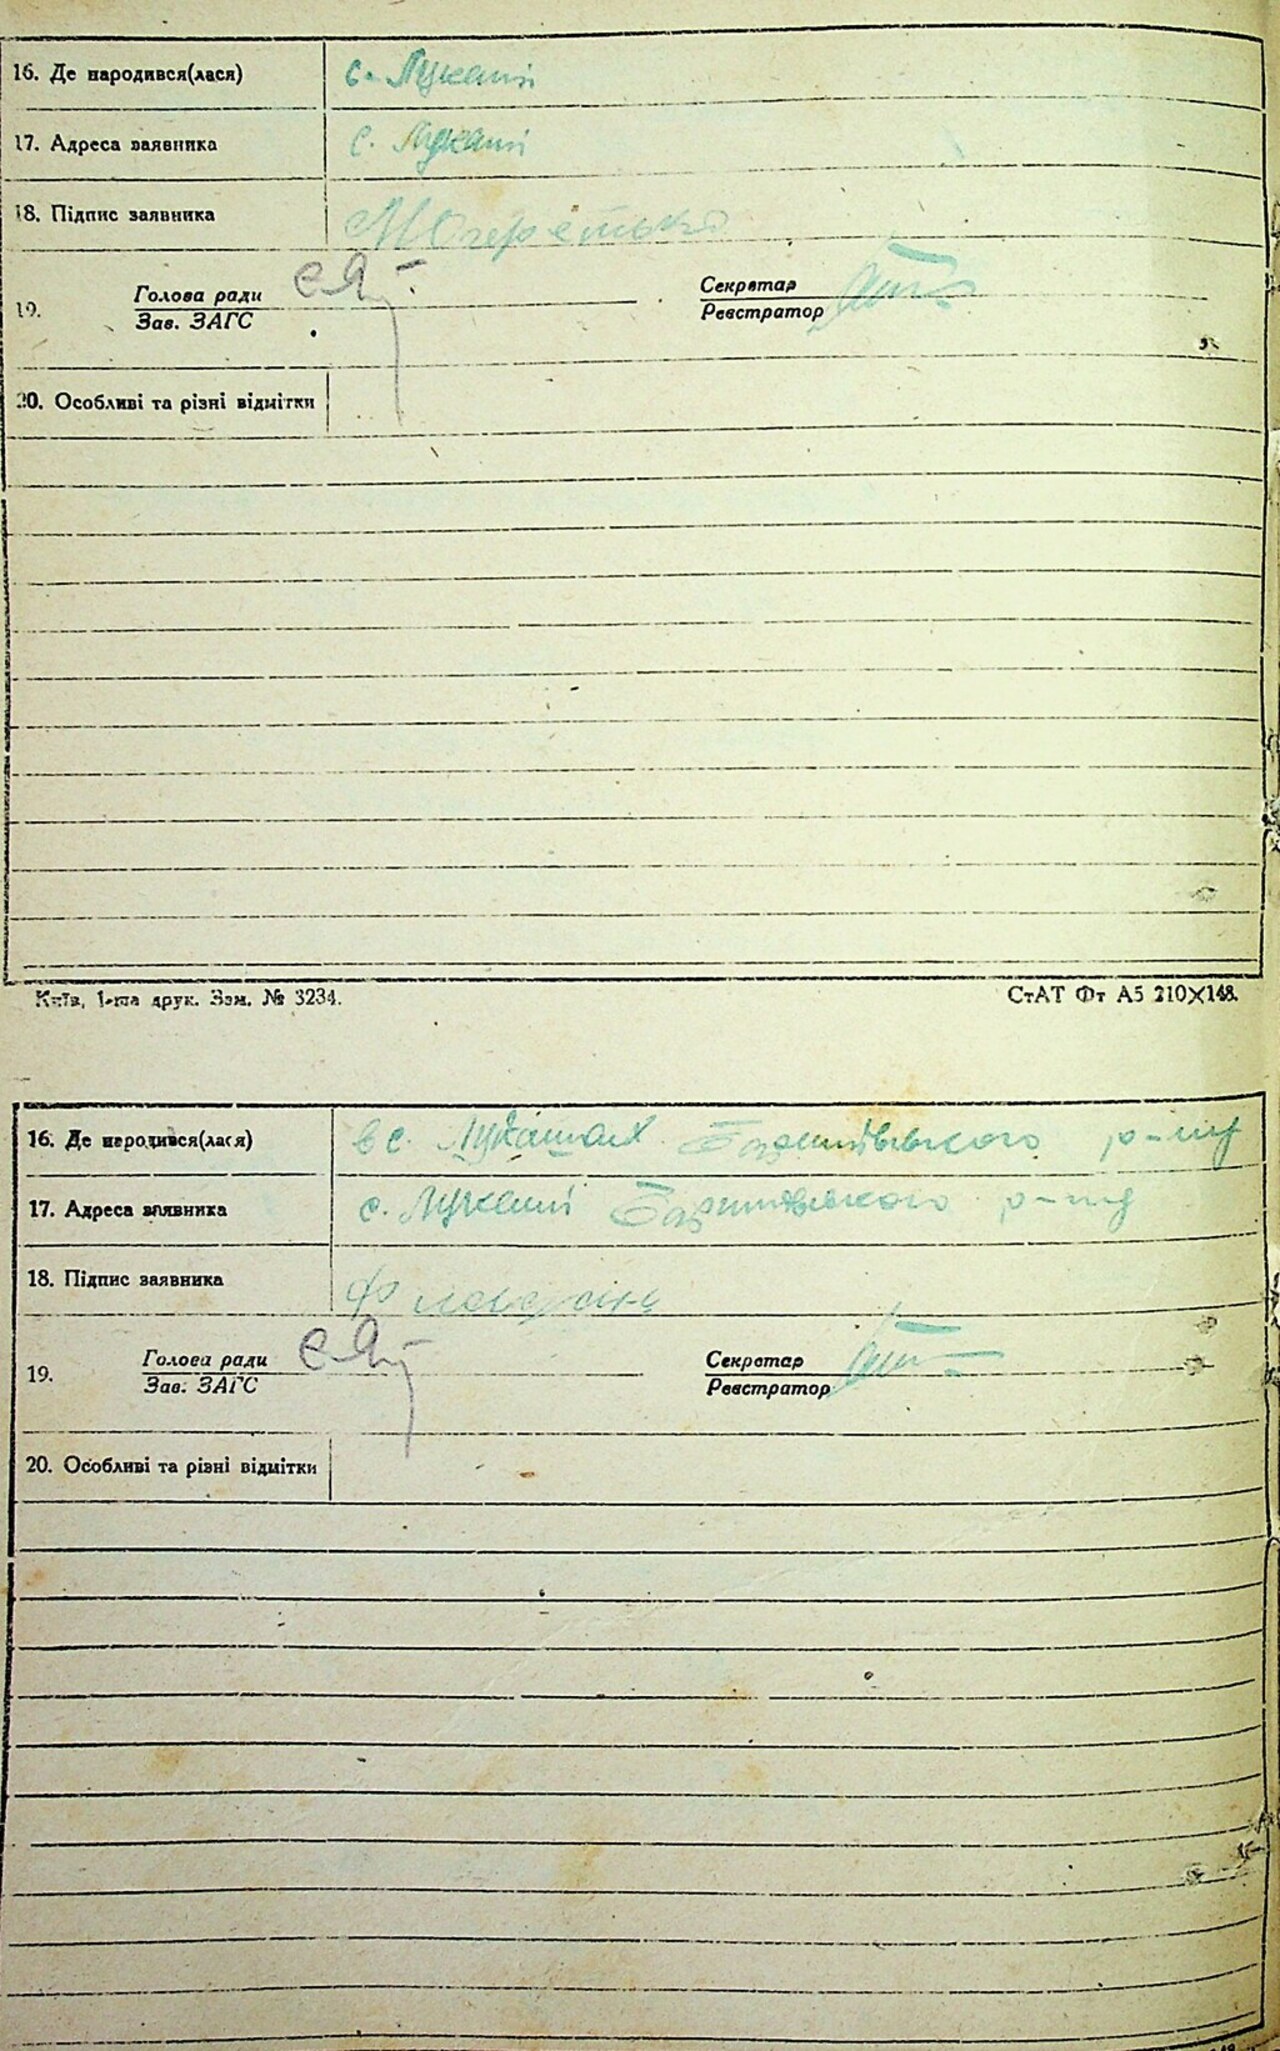 16. Де народився(лася) с. Лукаші
17. Адреса заявника с. Лукаші
18. Підпис заявника
19. Голова ради Секретар
Зав. ЗАГС Реєстратор
20. Особливі та різні відмітки
Київ, 1-ша друк. Зам. № 3234. СтАТ Фт А5 210×148.
16. Де народився(лася) в с. Лукашах Баришівського р-ну
17. Адреса заявника с. Лукаші Баришівського р-ну
18. Підпис заявника
19. Голова ради Секретар
Зав. ЗАГС Реєстратор
20. Особливі та різні відмітки